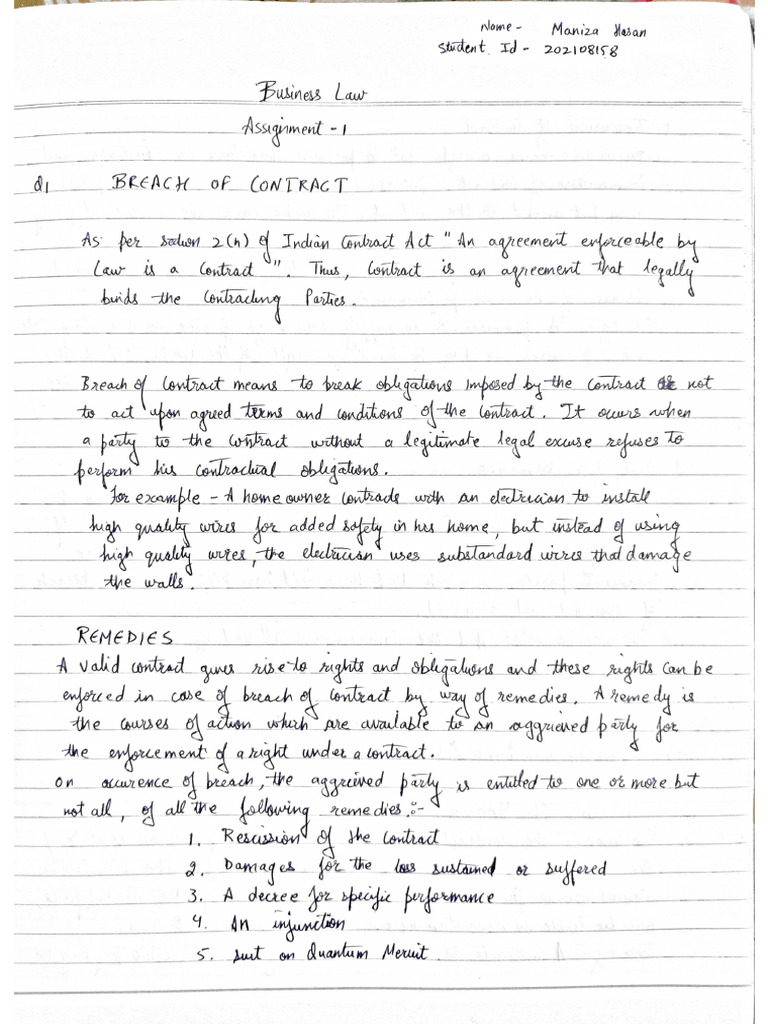 Name - Maniza Hasan
Student Id - 202108158
Business Law
Assignment - 1
Q1 BREACH OF CONTRACT
As per section 2(h) of Indian Contract Act " An agreement enforceable by
Law is a Contract ". Thus, Contract is an agreement that legally
binds the Contracting Parties.
Breach of Contract means to break obligations imposed by the contract or not
to act upon agreed terms and conditions of the contract. It occurs when
a party to the contract without a legitimate legal excuse refuses to
perform his contractual obligations.
For example - A home owner contracts with an electrician to install
high quality wires for added safety in his home, but instead of using
high quality wires, the electrician uses substandard wires that damage
the walls.
REMEDIES
A valid contract gives rise to rights and obligations and these rights can be
enforced in case of breach of contract by way of remedies. A remedy is
the courses of action which are available to an aggrieved party for
the enforcement of a right under a contract.
On occurence of breach, the aggrieved party is entitled to one or more but
not all, of all the following remedies :-
1. Rescission of the Contract
2. Damages for the loss sustained or suffered
3. A decree for specific performance
4. An injunction
5. suit on Quantum Meruit.